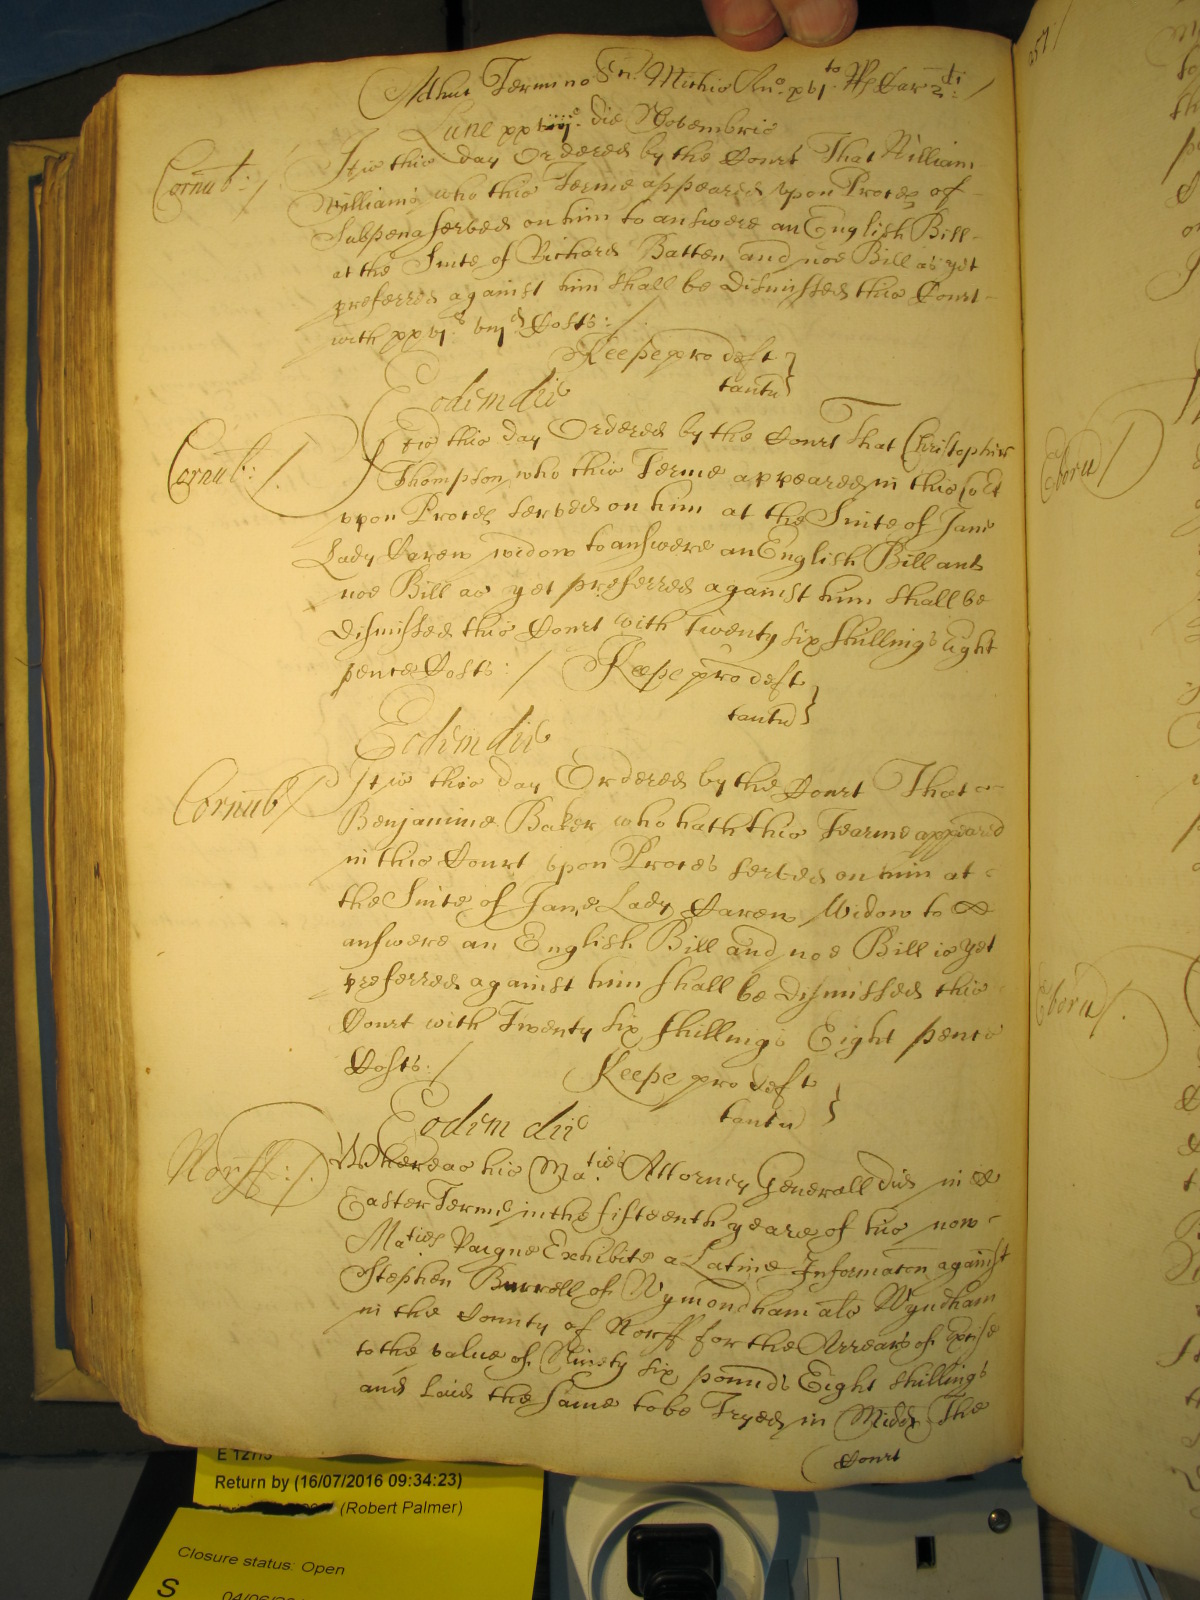 Adhuc Termino Sci Michis Anno xvj to RRs Car 2di
Lune xxviij die Novembris
Cornub:/ It is this day Ordered by the Court That William
Williams who this Terme appeared upon Proces of
Subpena served on him to answere an English Bill
at the Suite of Richard Batten and noe Bill as yet
preferred against him shall be dismissed this Court
with xxvj s viij d Costs:/
Keepe pro deft
tantu
Eodem die
Cornub:/ It is this day Ordered by the Court That Christopher
Thompson who this Terme appeared in this Co:rt
upon Proces served on him at the Suite of Jane
Lady Carew widow to answere an English Bill and
noe Bill as yet preferred against him shall be
dismissed this Court with twenty six shillings Eight
pence Costs:/ Keepe pro deft
tantu
Eodem die
Cornub/ It is this day Ordered by the Court That
Benjamine Baker who hath this Tearme appeared
in this Court upon Proces served on him at
the Suite of Jane Lady Carew Widow to
answere an English Bill and noe Bill is yet
preferred against him shall be dismissed this
Court with Twenty six shillings Eight pence
Costs:/ Keepe pro deft
tantu
Eodem die
Norff:/ Whereas his Ma:ties Attorney Generall did in
Easter Terme in the fifteenth yeare of his now
Ma:ties Raigne Exhibite a Latine Informacon against
Stephen Burrell of Wymondham als Wyndham
in the County of Norff for the Arrears of Excise
to the value of Ninety six pounds Eight shillings
and Laid the same to be Tryed in Midds The
Court
257/
Eboru/
Eboru/.
E 127/5
Return by (16/07/2016 09:34:23)
(Robert Palmer)
Closure status: Open
S